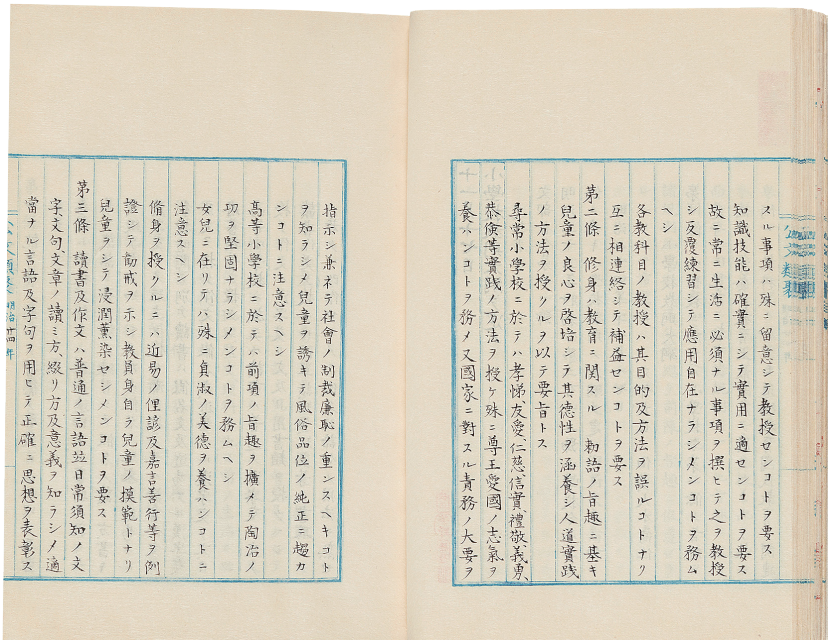 スル事項ハ殊ニ留意シテ教授センコトヲ要ス
知識技能ハ確實ニシテ實用ニ適センコトヲ要ス
故ニ常ニ生活ニ必須ナル事項ヲ撰ヒテ之ヲ教授
シ反覆練習シテ應用自在ナラシメンコトヲ務ム
ヘシ
各教科目ノ教授ハ其目的及方法ヲ誤ルコトナリ
互ニ相連絡シテ補益センコトヲ要ス
第二條 修身ハ教育ニ関スル 勅語ノ旨趣ニ基キ
兒童ノ良心ヲ啓培シテ其德性ヲ涵養シ人道實践
ノ方法ヲ授クルヲ以テ要旨トス
尋常小學校ニ於テハ孝悌、友愛、仁慈、信實、禮敬、義勇、
恭儉等實践ノ方法ヲ授ケ殊ニ尊王愛國ノ志氣ヲ
養ハンコトヲ務メ又國家ニ對スル責務ノ大要ヲ
指示シ兼ネテ社會ノ制裁廉恥ノ重ンスヘキコト
ヲ知ラシメ兒童ヲ誘キテ風俗品位ノ純正ニ趨カ
ンコトニ注意スヘシ
高等小學校ニ於テハ前項ノ旨趣ヲ擴メテ陶冶ノ
功ヲ堅固ナラシメンコトヲ務ムヘシ
女兒ニ在リテハ殊ニ貞淑ノ美德ヲ養ハンコトニ
注意スヘシ
脩身ヲ授クルニハ近易ノ俚諺及嘉言善行等ヲ例
證シテ勧戒ヲ示シ教員身自ラ兒童ノ摸範トナリ
兒童ヲシテ浸潤薫染セシメンコトヲ要ス
第三條 讀書及作文ハ普通ノ言語竝日常須知ノ文
字、文句、文章ノ讀ミ方、綴リ方及意義ヲ知ラシメ適
當ナル言語及字句ヲ用ヒテ正確ニ思想ヲ表彰ス